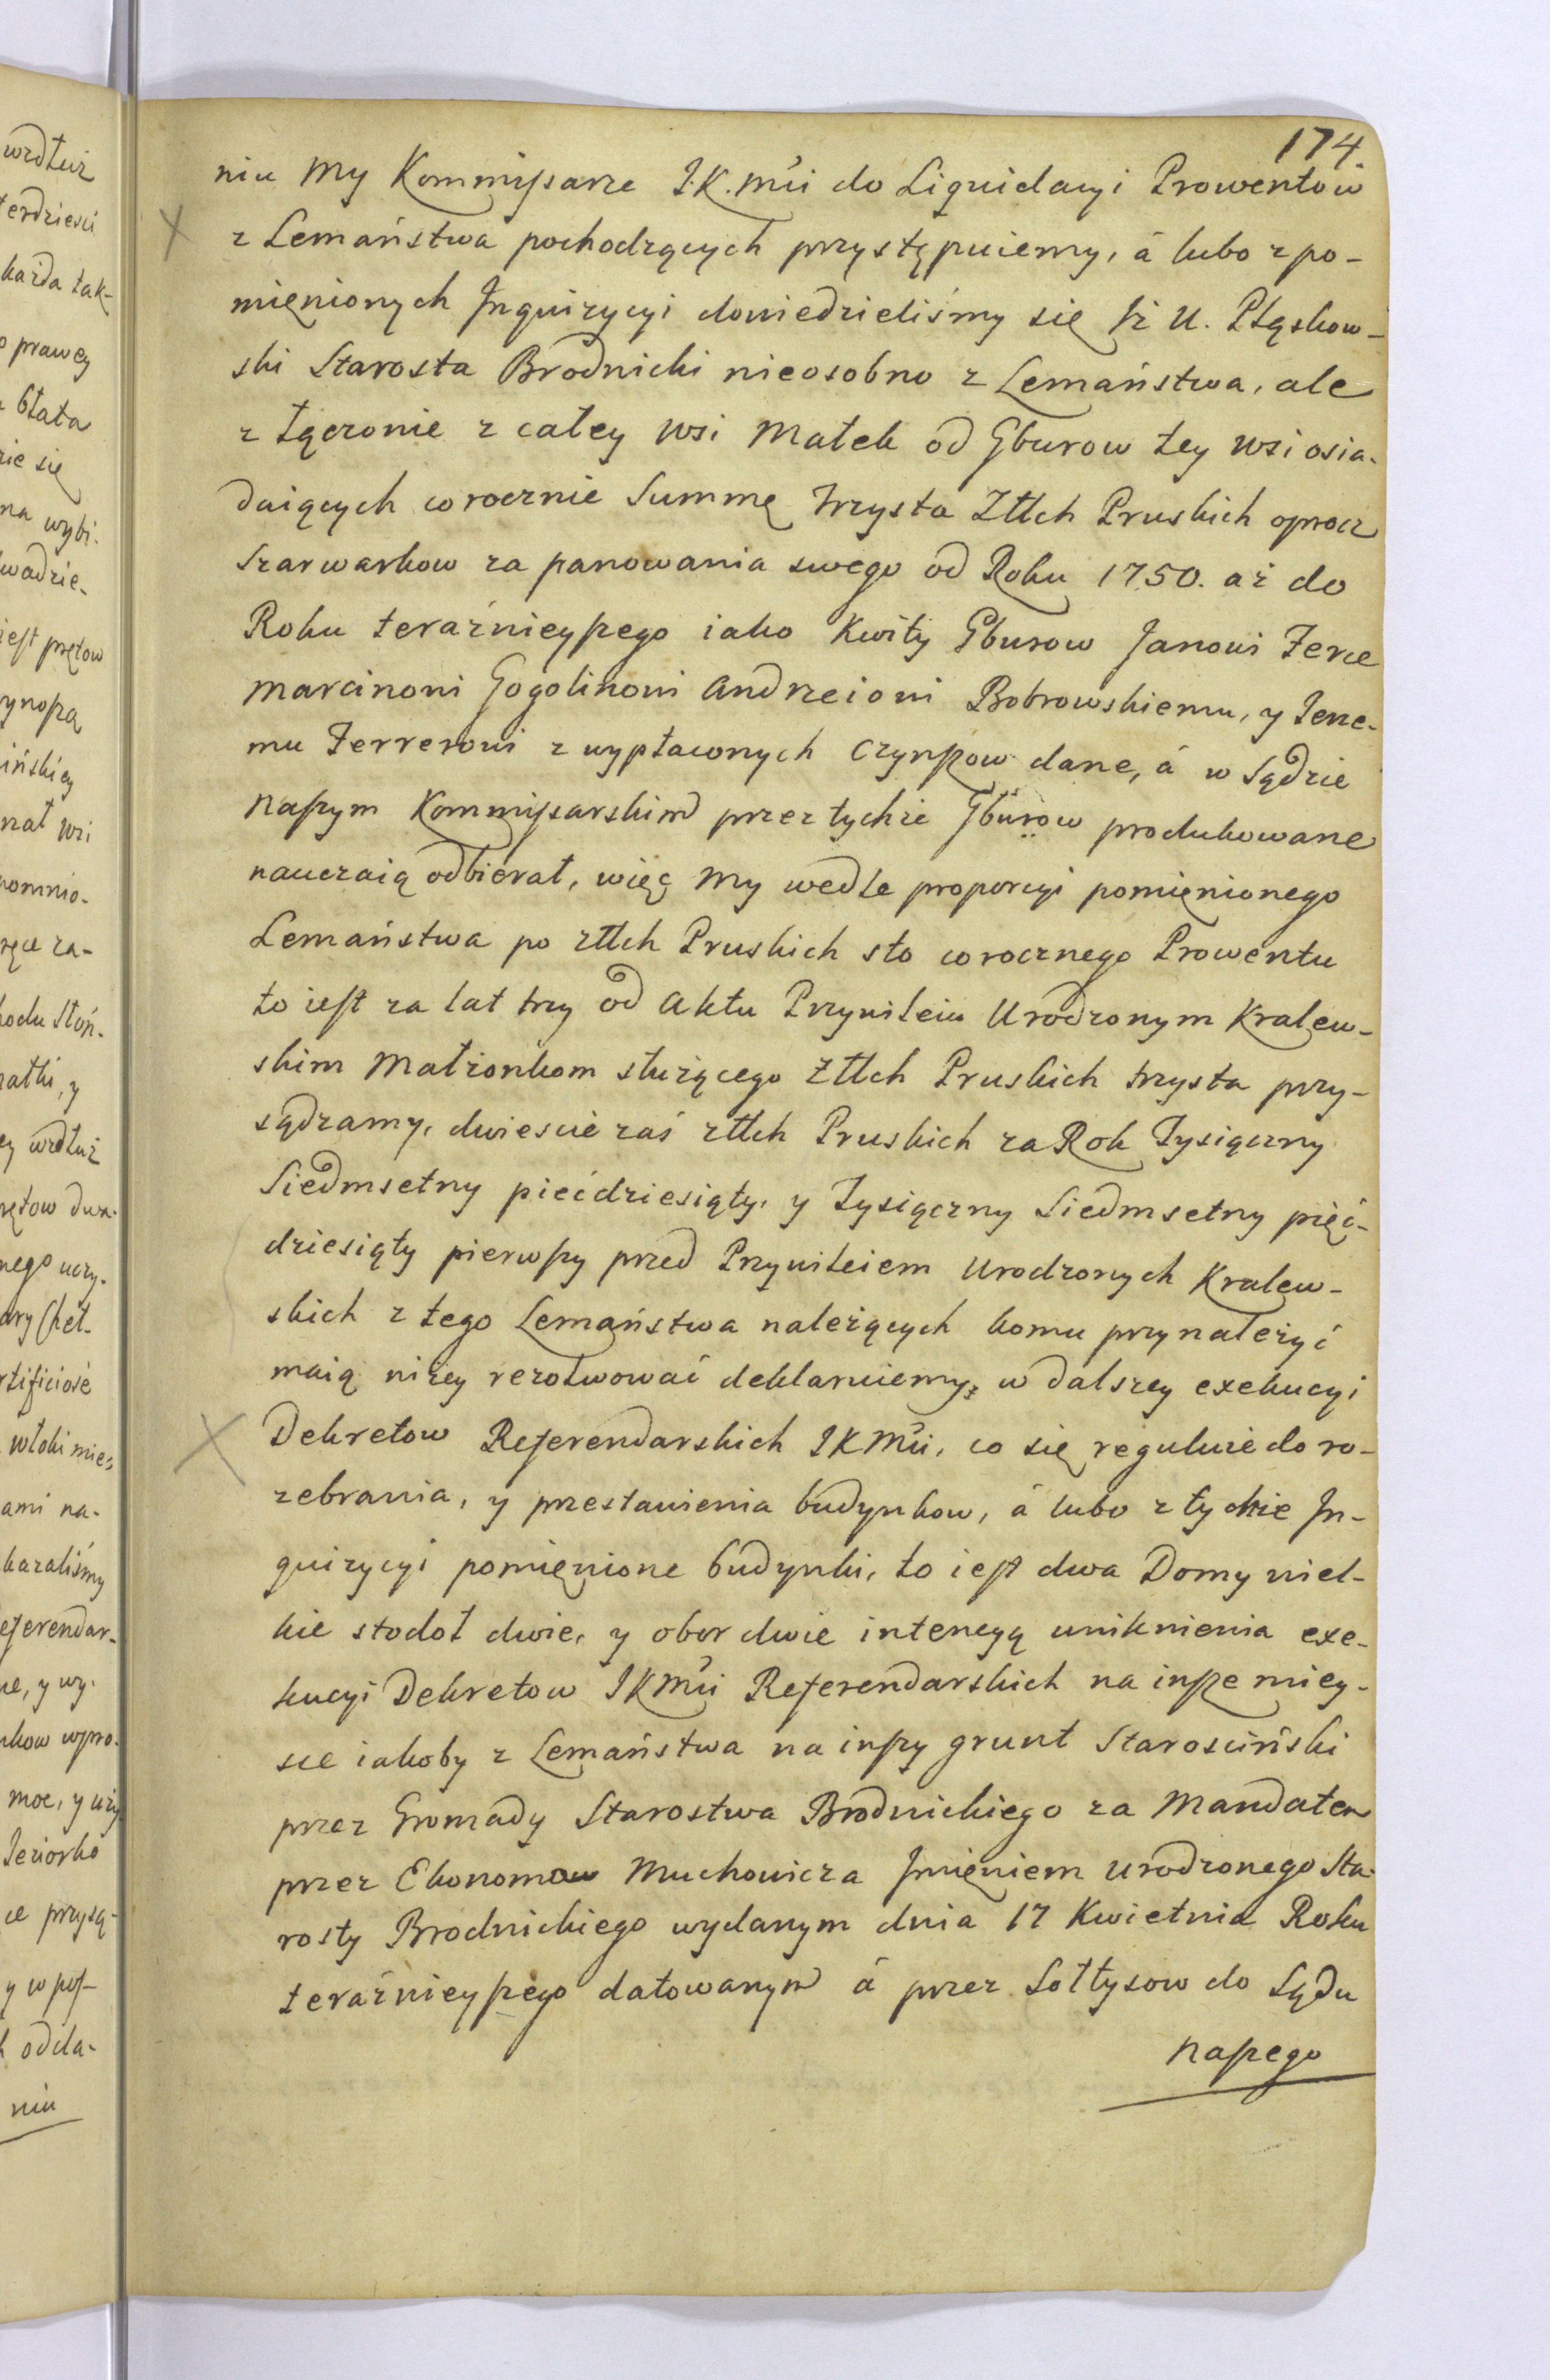 174.
niu My Kommissarze J.K.Mći do Liquidacyi Prowentow
z Lemaństwa pochodzących przystępuiemy, á lubo z po-
mięnionych Jnquizycyi dowiedzieliśmy się Jż U. Pląskow-
ski Starosta Brodnicki nieosobno z Lemaństwa, ale
z łącznie z całey wsi Małek od Gburow tey wsi osia-
daiących corocznie Summę trzysta Zttch Pruskich oprocz
Szarwarkow za panowania swego od Roku 1750. aż do
Roku teraźnieyszego iako Kwity Gburow Janowi Ferce
Marcinowi Gogolinowi Andrzeiowi Bobrowskiemu, y Jerze-
mu Ferrerowi z wypłaconych Czynszow dane, á w Sądzie
Naszym Kommissarskim przez tychże Gburow produkowane
nauczaią odbierał, więc My wedle proporcyi pomięnionego
Lemaństwa po zttch Pruskich sto corocznego Prowentu
to iest za lat trzy od Aktu Przywileiu Urodzonym Kralew-
skim Małżonkom służącego Zttch Pruskich trzysta przy-
sądzamy, dwieście zaś zttch Pruskich za Rok Tysiączny
Siedmsetny pięćdziesiąty, y Tysiączny Siedmsetny pięć-
dziesiąty pierwszy przed Przywileiem Urodzonych Kralew-
skich z tego Lemaństwa należących komu przynależyć
maią niżey rezolwować deklaruiemy, w dalszey exekucyi
Dekretow Referendarskich JKMći, co się reguluie do ro-
zebrania, y przestawienia budynkow, á lubo z tychże Jn-
quizycyi pomięnione budynki, to iest dwa Domy wiel-
kie stodoł dwie, y obor dwie intencyą uniknienia exe-
kucyi Dekretow JKMći Referendarskich na insze miey-
sce iakoby z Lemaństwa na inszy grunt Starosciński
przez Gromady Starostwa Brodnickiego za Mandatem
przez Ekonomow Muchowicza Jmięniem Urodzonego Sta-
rosty Brodnickiego wydanym dnia 17 Kwietnia Roku
teraźnieyszego datowanym á przez Sołtysow do Sądu
naszego